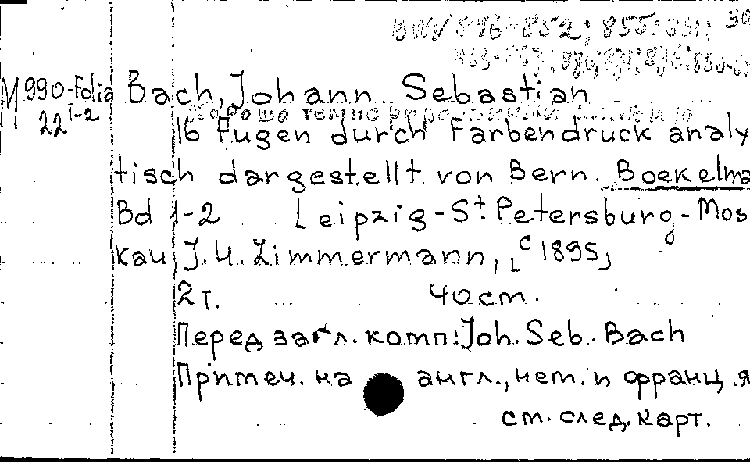 BWV 846-852; 855; 851;
M 990-Folia Bach, Johann Sebastian
22 1-2
16 Fugen durch Farbendruck analy
tisch dargestellt von Bern. Boekelma
Bd 1-2 Leipzig-St Petersburg-Mos
kau, J. H. Zimmermann, [c 1895]
2 т. 40 cm.
Перед загл. комп: Joh. Seb. Bach
Примеч. на англ., нем. и франц. я
см. след. карт.